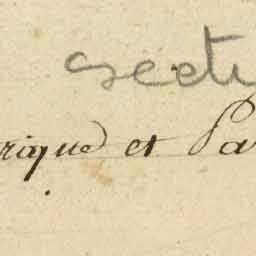 secti
rique et Pa